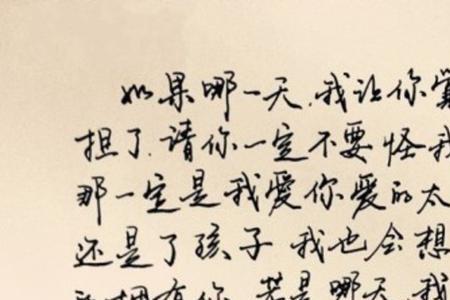 如果哪一天，我让你觉
担了，请你一定不要怪我
那一定是我爱你爱的太
还是了孩子 我也会想
拥有你，若是哪天，我